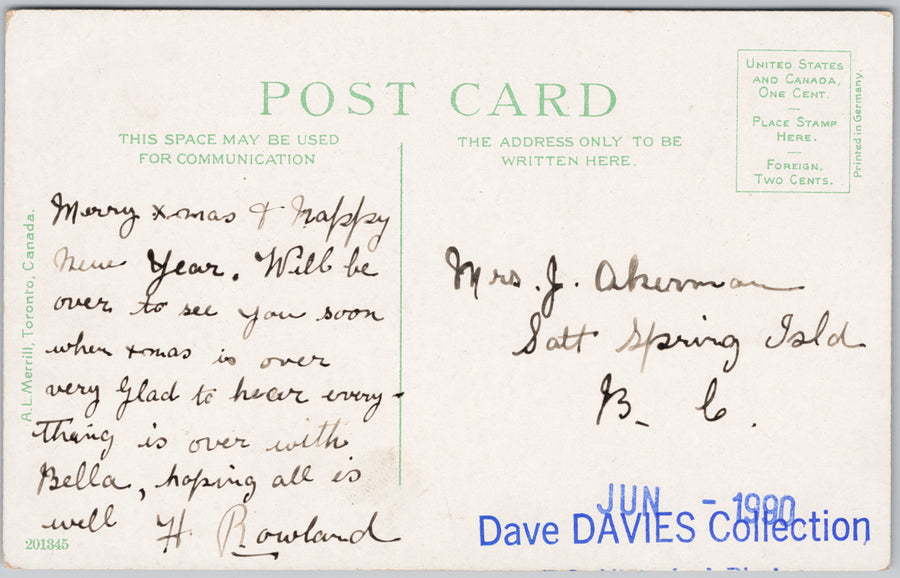 POST CARD
THIS SPACE MAY BE USED
FOR COMMUNICATION
THE ADDRESS ONLY TO BE
WRITTEN HERE.
UNITED STATES
AND CANADA,
ONE CENT.
PLACE STAMP
HERE.
FOREIGN,
TWO CENTS.
Printed in Germany.
A.L. Merrill, Toronto, Canada.
Merry xmas & happy
New Year. Will be
over to see you soon
when xmas is over
very Glad to hear every-
thing is over with
Bella, hoping all is
well H Rowland
Mrs. J. Akerman
Salt Spring Isld
B. C.
201345
JUN - 1990
Dave DAVIES Collection